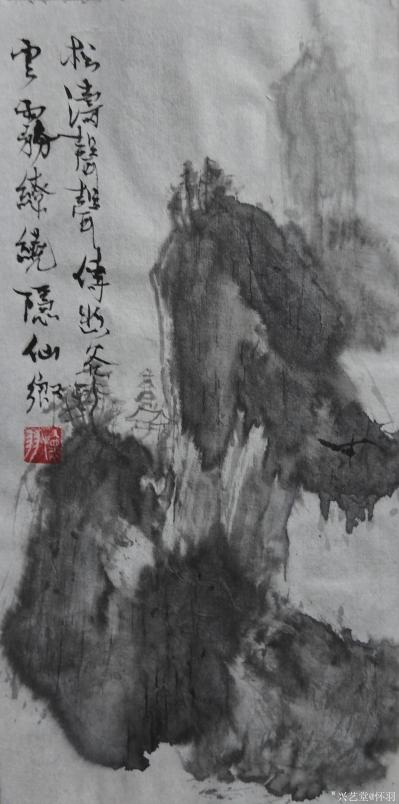 松濤聲聲傳幽谷
雲霧繚繞隱仙鄉
兴艺堂@怀羽